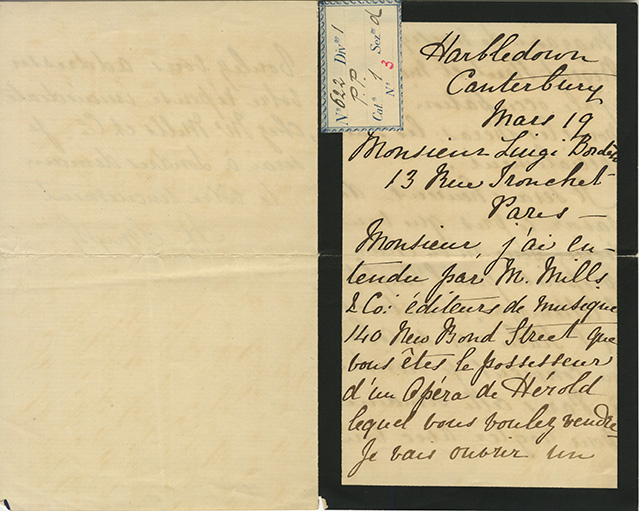 Nº 622 Divne 1
P.P.
Catª 1 Sezne d
Nº 3
Harbledown
Canterbury
Mars 19
Monsieur Luigi Bordèse
13 Rue Tronchet
Paris —
Monsieur, j'ai en-
tendu par M. Mills
& Co: éditeurs de musique
140 New Bond Street que
vous êtes le possesseur
d'un Opéra de Hérold
lequel vous voulez vendre
Je vais ouvrir un